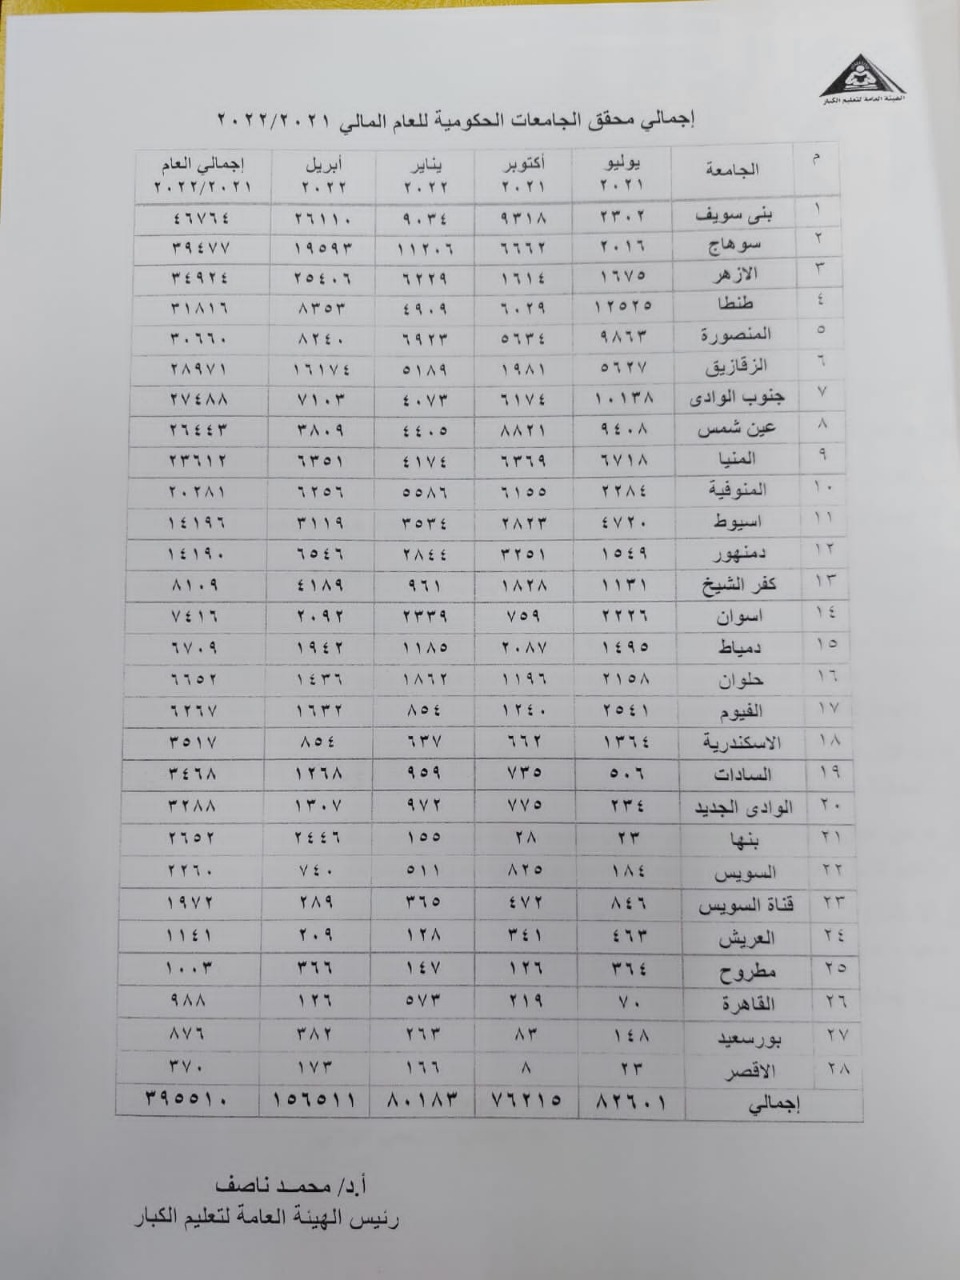 الهيئة العامة لتعليم الكبار
إجمالي محقق الجامعات الحكومية للعام المالي ٢٠٢٢/٢٠٢١
م الجامعة يوليو ٢٠٢١ أكتوبر ٢٠٢١ يناير ٢٠٢٢ أبريل ٢٠٢٢ إجمالي العام ٢٠٢٢/٢٠٢١
١ بنى سويف ٢٣٠٢ ٩٣١٨ ٩٠٣٤ ٢٦١١٠ ٤٦٧٦٤
٢ سوهاج ٢٠١٦ ٦٦٦٢ ١١٢٠٦ ١٩٥٩٣ ٣٩٤٧٧
٣ الازهر ١٦٧٥ ١٦١٤ ٦٢٢٩ ٢٥٤٠٦ ٣٤٩٢٤
٤ طنطا ١٢٥٢٥ ٦٠٢٩ ٤٩٠٩ ٨٣٥٣ ٣١٨١٦
٥ المنصورة ٩٨٦٣ ٥٦٣٤ ٦٩٢٣ ٨٢٤٠ ٣٠٦٦٠
٦ الزقازيق ٥٦٢٧ ١٩٨١ ٥١٨٩ ١٦١٧٤ ٢٨٩٧١
٧ جنوب الوادى ١٠١٣٨ ٦١٧٤ ٤٠٧٣ ٧١٠٣ ٢٧٤٨٨
٨ عين شمس ٩٤٠٨ ٨٨٢١ ٤٤٠٥ ٣٨٠٩ ٢٦٤٤٣
٩ المنيا ٦٧١٨ ٦٣٦٩ ٤١٧٤ ٦٣٥١ ٢٣٦١٢
١٠ المنوفية ٢٢٨٤ ٦١٥٥ ٥٥٨٦ ٦٢٥٦ ٢٠٢٨١
١١ اسيوط ٤٧٢٠ ٢٨٢٣ ٣٥٣٤ ٣١١٩ ١٤١٩٦
١٢ دمنهور ١٥٤٩ ٣٢٥١ ٢٨٤٤ ٦٥٤٦ ١٤١٩٠
١٣ كفر الشيخ ١١٣١ ١٨٢٨ ٩٦١ ٤١٨٩ ٨١٠٩
١٤ اسوان ٢٢٢٦ ٧٥٩ ٢٣٣٩ ٢٠٩٢ ٧٤١٦
١٥ دمياط ١٤٩٥ ٢٠٨٧ ١١٨٥ ١٩٤٢ ٦٧٠٩
١٦ حلوان ٢١٥٨ ١١٩٦ ١٨٦٢ ١٤�٦ ٦٦٥٢
١٧ الفيوم ٢٥٤١ ١٢٤٠ ٨٥٤ ١٦٣٢ ٦٢٦٧
١٨ الاسكندرية ١٣٦٤ ٦٦٢ ٦٣٧ ٨٥٤ ٣٥١٧
١٩ السادات ٥٠٦ ٧٣٥ ٩٥٩ ١٢٦٨ ٣٤٦٨
٢٠ الوادى الجديد ٢٣٤ ٧٧٥ ٩٧٢ ١٣٠٧ ٣٢٨٨
٢١ بنها ٢٣ ٢٨ ١٥٥ ٢٤٤٦ ٢٦٥٢
٢٢ السويس ١٨٤ ٨٢٥ ٥١١ ٧٤٠ ٢٢٦٠
٢٣ قناة السويس ٨٤٦ ٤٧٢ ٣٦٥ ٢٨٩ ١٩٧٢
٢٤ العريش ٤٦٣ ٣٤١ ١٢٨ ٢٠٩ ١١٤١
٢٥ مطروح ٣٦٤ ١٢٦ ١٤٧ ٣٦٦ ١٠٠٣
٢٦ القاهرة ٧٠ ٢١٩ ٥٧٣ ١٢٦ ٩٨٨
٢٧ بورسعيد ١٤٨ ٨٣ ٢٦٣ ٣٨٢ ٨٧٦
٢٨ الاقصر ٢٣ ٨ ١٦٦ ١٧٣ ٣٧٠
إجمالي ٨٢٦٠١ ٧٦٢١٥ ٨٠١٨٣ ١٥٦٥١١ ٣٩٥٥١٠
أ.د/ محمد ناصف
رئيس الهيئة العامة لتعليم الكبار